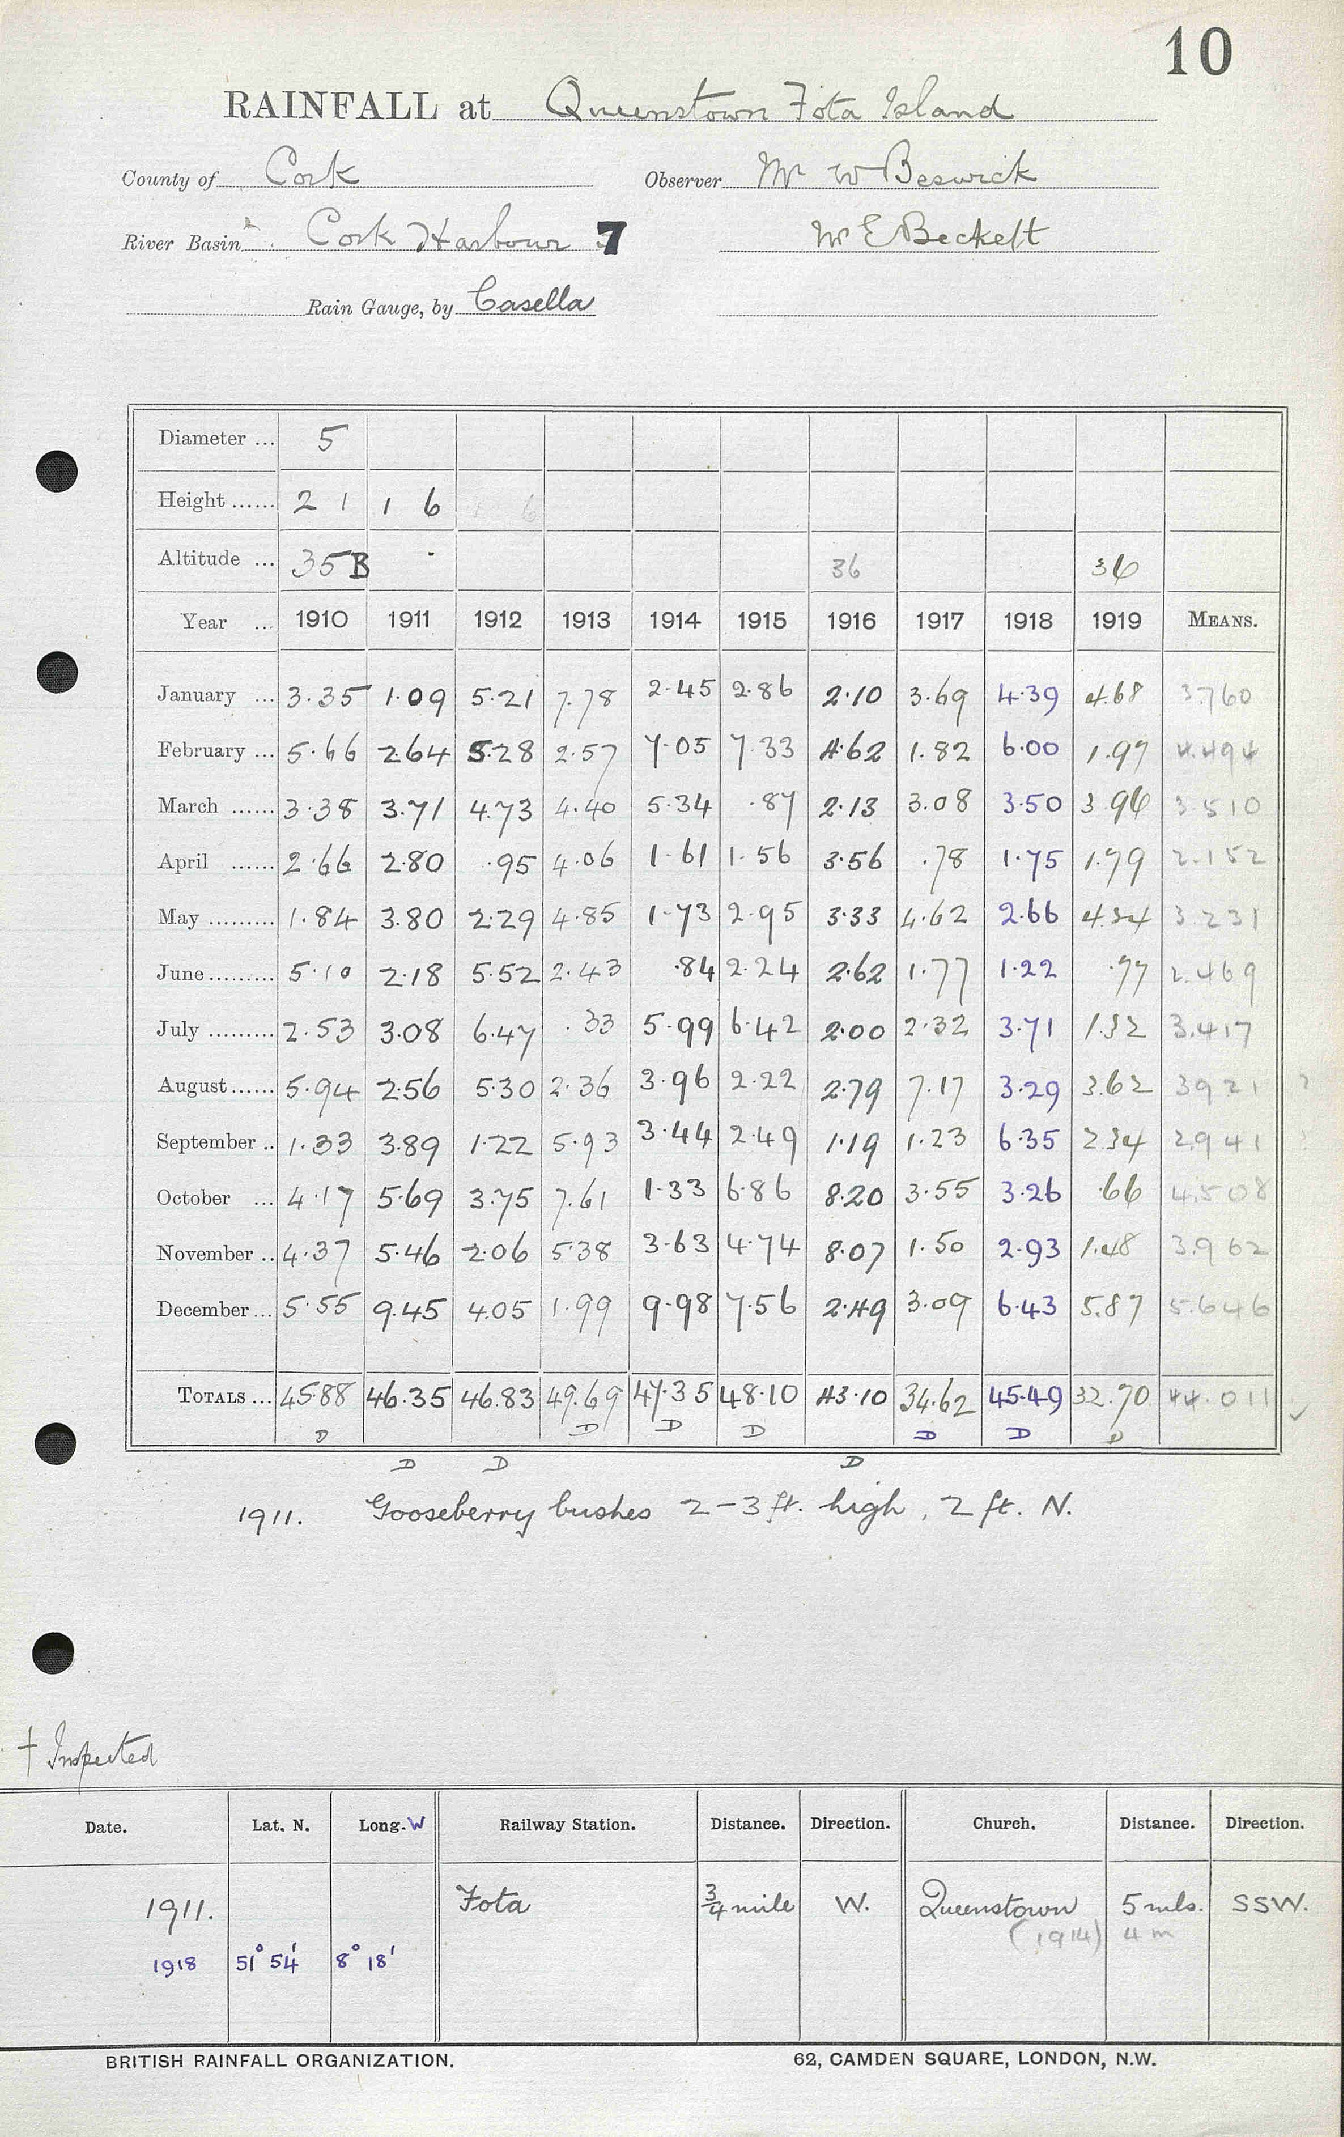 10
RAINFALL at Queenstown Fota Island
County of Cork Observer Mr W Beswick
River Basin Cork Harbour 7 Mr E Beckett
Rain Gauge, by Casella
Diameter ... 5
Height ...... 2 1 1 6 1 6
Altitude ... 35 B 36 36
Year ... 1910 1911 1912 1913 1914 1915 1916 1917 1918 1919 MEANS.
January ... 3.35 1.09 5.21 7.78 2.45 2.86 2.10 3.69 4.39 4.68 3.760
February ... 5.66 2.64 5.28 2.57 7.05 7.33 4.62 1.82 6.00 1.97 4.494
March ...... 3.38 3.71 4.73 4.40 5.34 .87 2.13 3.08 3.50 3.96 3.510
April ...... 2.66 2.80 .95 4.06 1.61 1.56 3.56 .78 1.75 1.79 2.152
May ......... 1.84 3.80 2.29 4.85 1.73 2.95 3.33 4.62 2.66 4.24 3.231
June ......... 5.10 2.18 5.52 2.43 .84 2.24 2.62 1.77 1.22 .77 2.469
July ......... 2.53 3.08 6.47 .33 5.99 6.42 2.00 2.32 3.71 1.32 3.417
August ...... 5.94 2.56 5.30 2.36 3.96 2.22 2.79 7.17 3.29 3.62 3.921 ?
September .. 1.33 3.89 1.22 5.93 3.44 2.49 1.19 1.23 6.35 2.34 2.941
October ... 4.17 5.69 3.75 7.61 1.33 6.86 8.20 3.55 3.26 .66 4.508
November .. 4.37 5.46 2.06 5.38 3.63 4.74 8.07 1.50 2.93 1.48 3.962
December ... 5.55 9.45 4.05 1.99 9.98 7.56 2.49 3.09 6.43 5.87 5.646
TOTALS ... 45.88 46.35 46.83 49.69 47.35 48.10 43.10 34.62 45.49 32.70 44.011 ✓
D D D D D D D
D D D
1911. Gooseberry bushes 2-3 ft. high, 2 ft. N.
† Inspected
Date. Lat. N. Long. W Railway Station. Distance. Direction. Church. Distance. Direction.
1911. Fota 3/4 mile W. Queenstown 5 mls. SSW.
(1914) 4 m
1918 51° 54' 8° 18'
BRITISH RAINFALL ORGANIZATION. 62, CAMDEN SQUARE, LONDON, N.W.